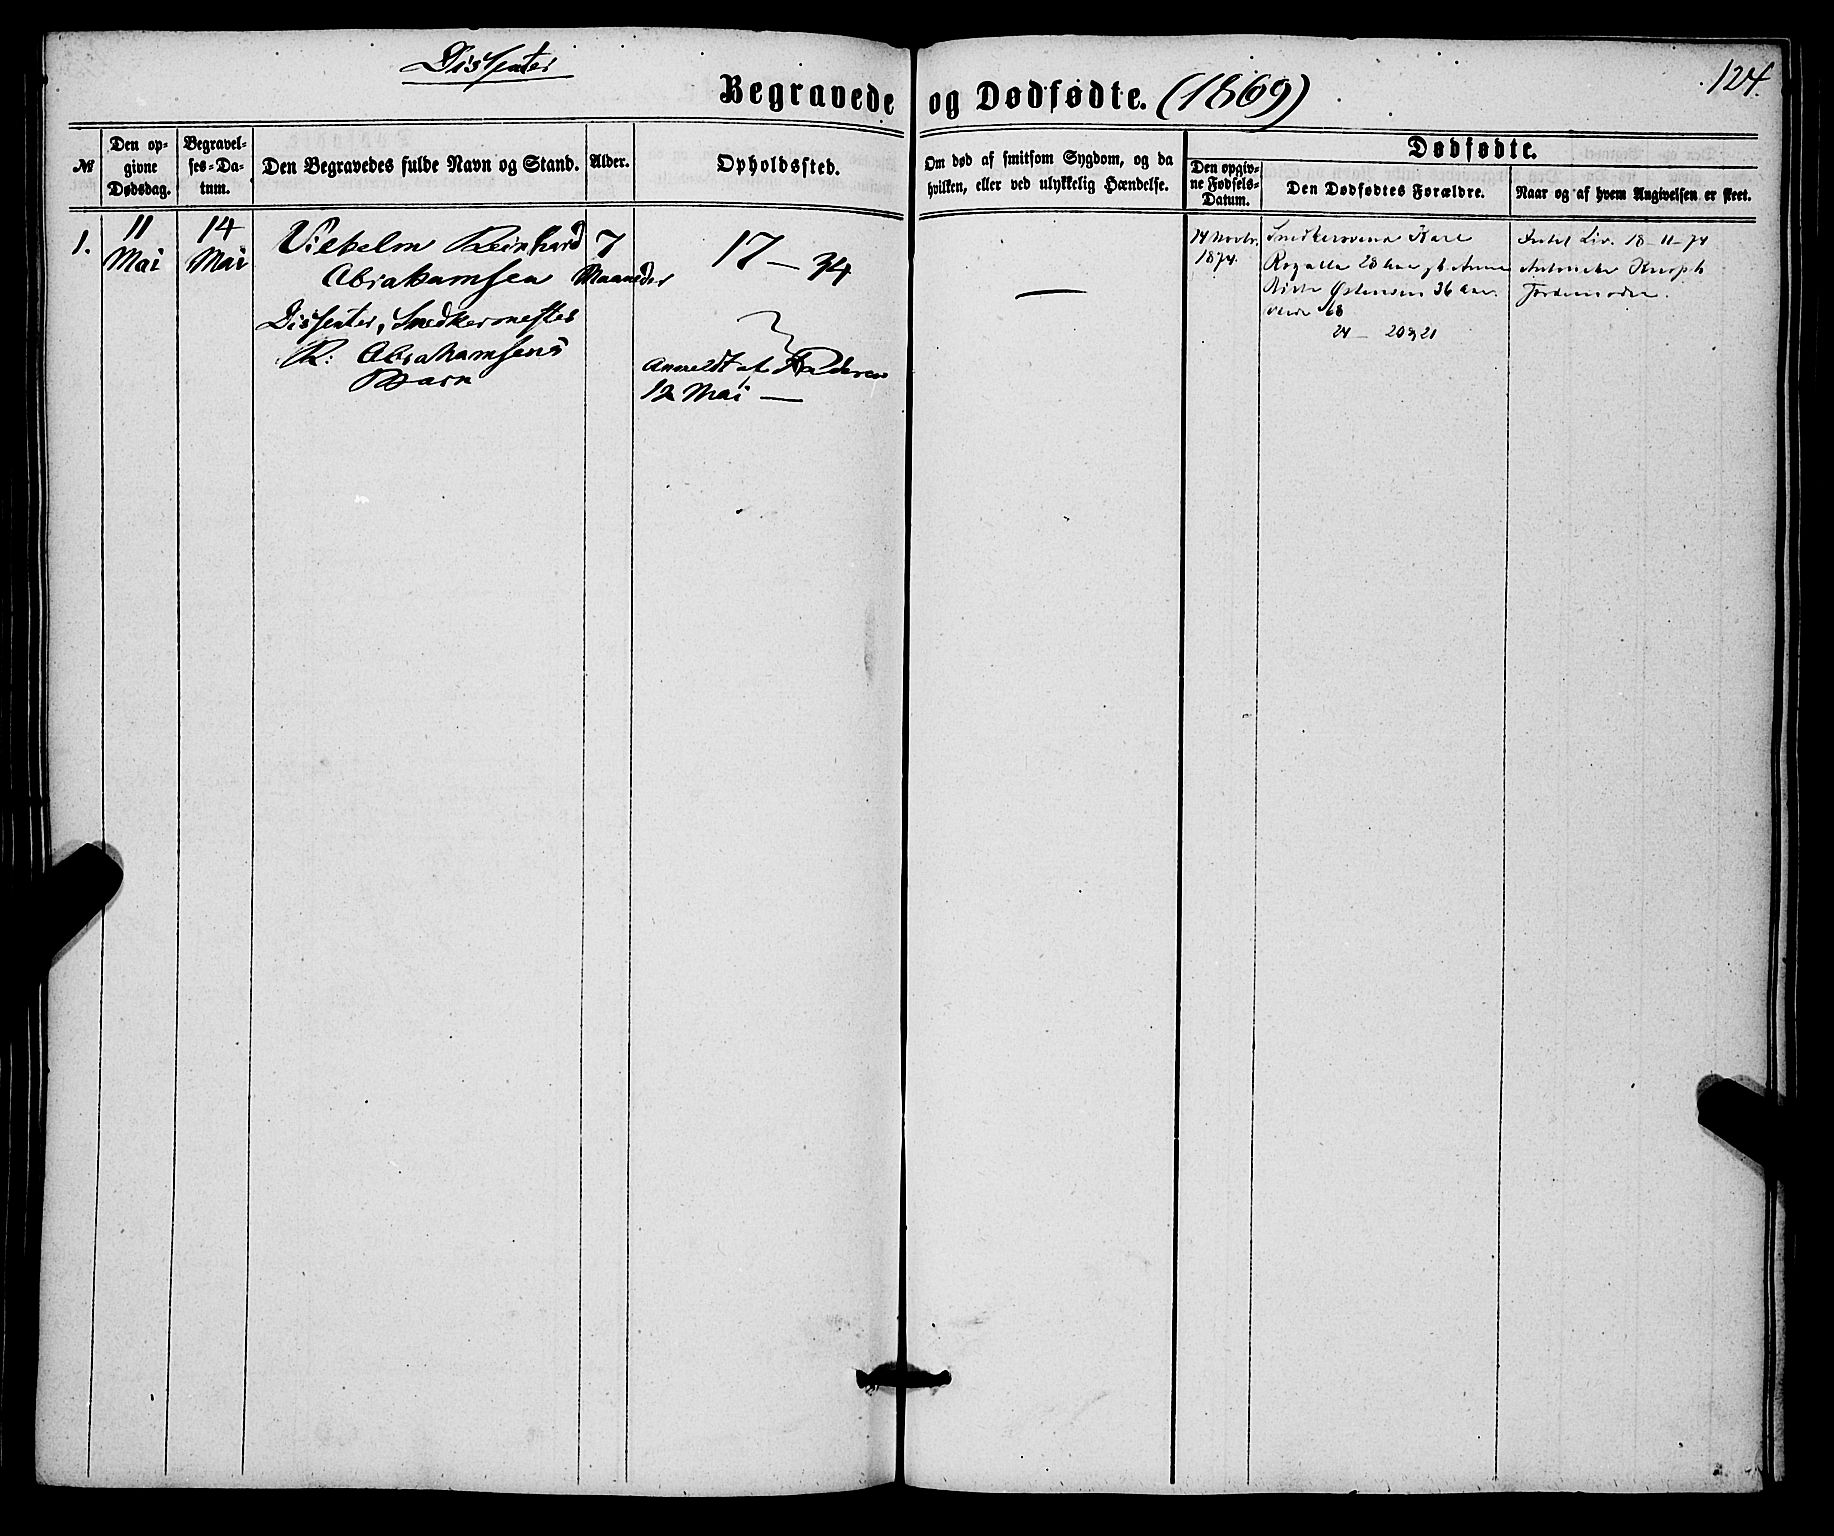 Dissenter
124.
Begravede og Dødfødte. (1869)
№
Den op-
givne
Dødsdag.
Begravel-
ses-Da-
tum.
Den Begravedes fulde Navn og Stand.
Alder.
Opholdssted.
Om død af smitsom Sygdom, og da
hvilken, eller ved ulykkelig Hændelse.
Dødfødte.
Den opgiv-
ne Fødsels-
Datum.
Den Dødfødtes Forældre.
Naar og af hvem Angivelsen er skeet.
1.
11
Mai
14
Mai
Vilhelm Reinhard
Abrahamsen
Dissenter, Snedkermester
R: Abrahamsens
Barn
7
Maaneder
17 — 34
Anmeldt af Pedersen
12 Mai —
—
14 Novbr.
1874.
Snedkersvend Karl
Rogalla 28 Aar
Østensen 36 Aar.
68
24 — 20 & 21
Liv. 18-11-74
Knoph
Jordemoder.